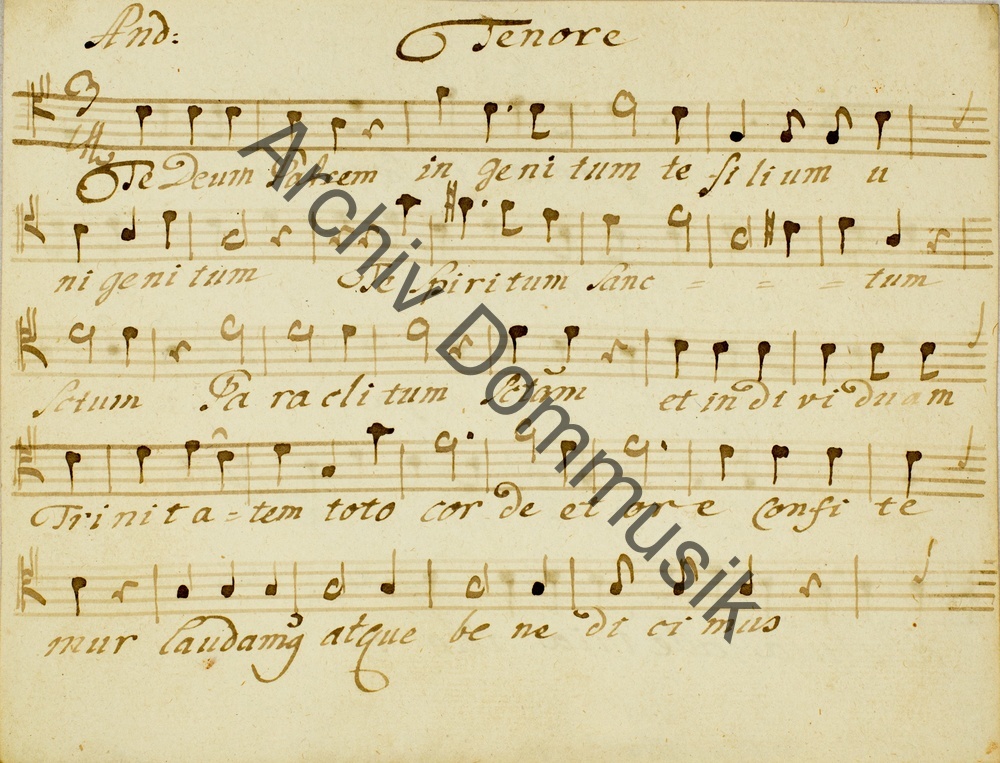 And: Tenore
Te Deum Patrem in ge ni tum te fi li um u
ni ge ni tum Te Spiri tum Sanc = = = tum
Sctum Pa ra cli tum Sctam et in di vi du am
Trini t a - = tem toto cor de et or e Confi te
mur laudam9 atque be ne di ci mus
Archiv Dommusik